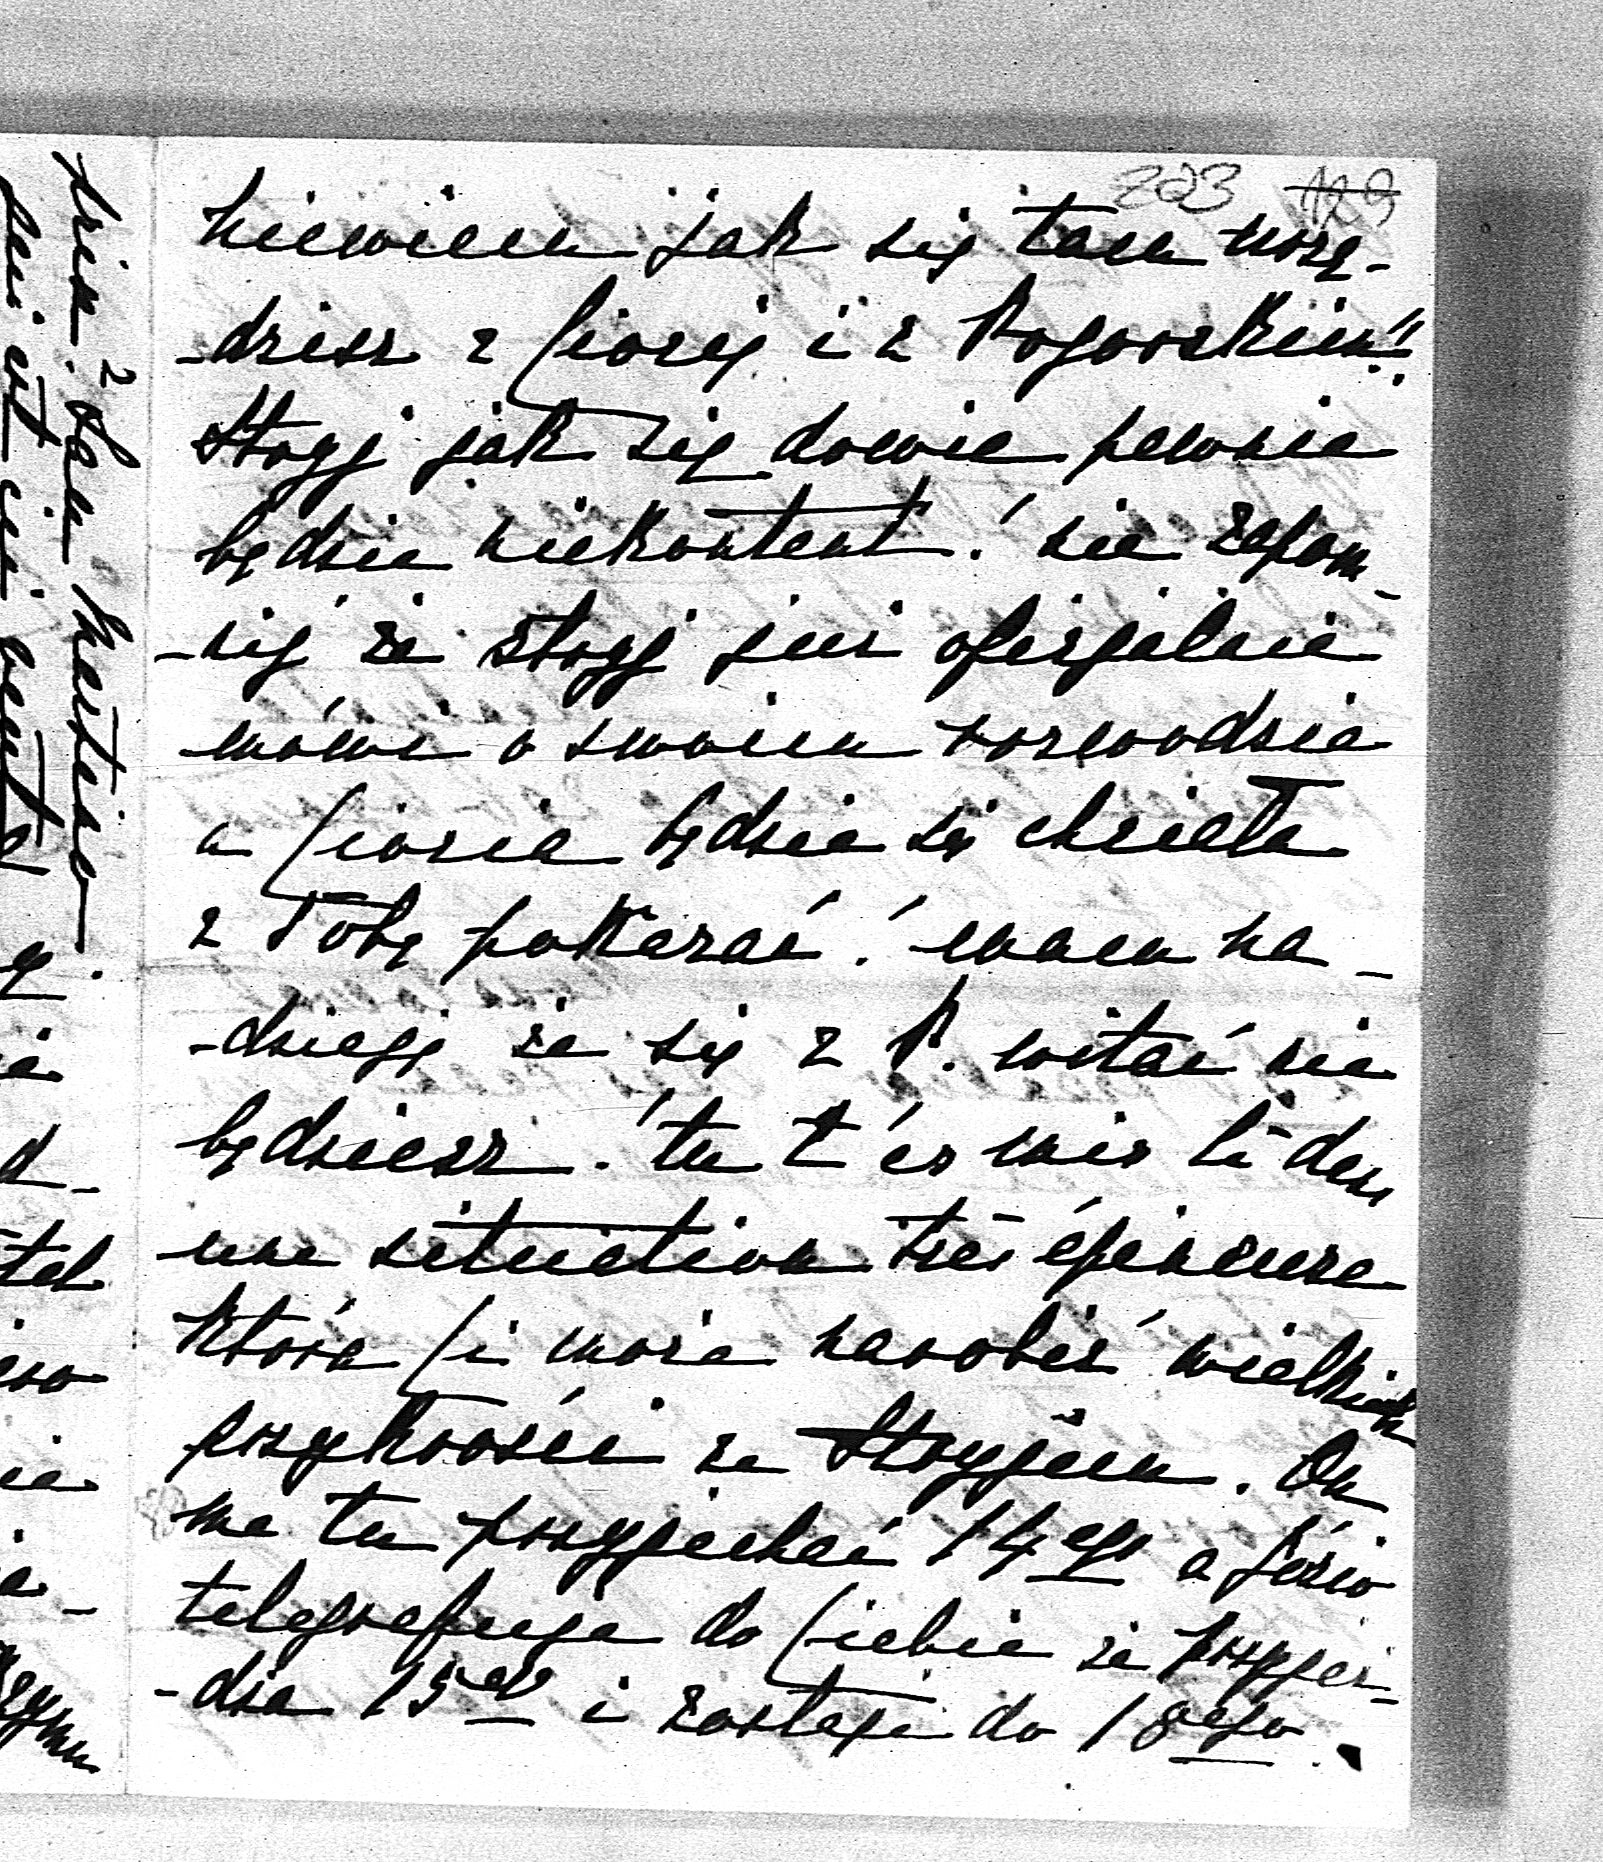 223 129
niewiem jak się tam urzą-
-dzisz z Ciocią i z Rogowskim!!
Stryj jak się dowie pewnie
będzie niekontent! nie zapom-
-nij że Stryj już oficjalnie
mówi o swoim rozwodzie
a Ciocia będzie się chciała
z Tobą pokazać! mam na-
-dzieję że się z R. witać nie
będziesz! tu t'es mis là dans
une situation très épineuse
która Ci może narobić wielkich
przykrości ze Stryjem. On
ma tu przyjechać 14ego a Józio
telegrafuje do Ciebie że przyjeż-
-dża 15ego i zostaje do 18ego.